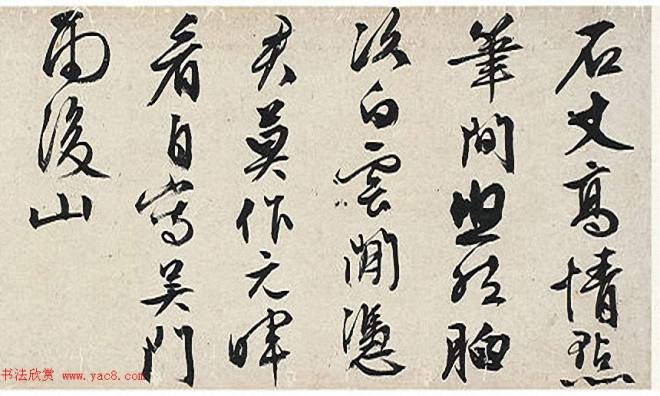 石丈高情點
筆間思從胸
次白雲閒憑
君莫作元暉
看自寫吴門
雨後山
书法欣赏 www.yac8.com